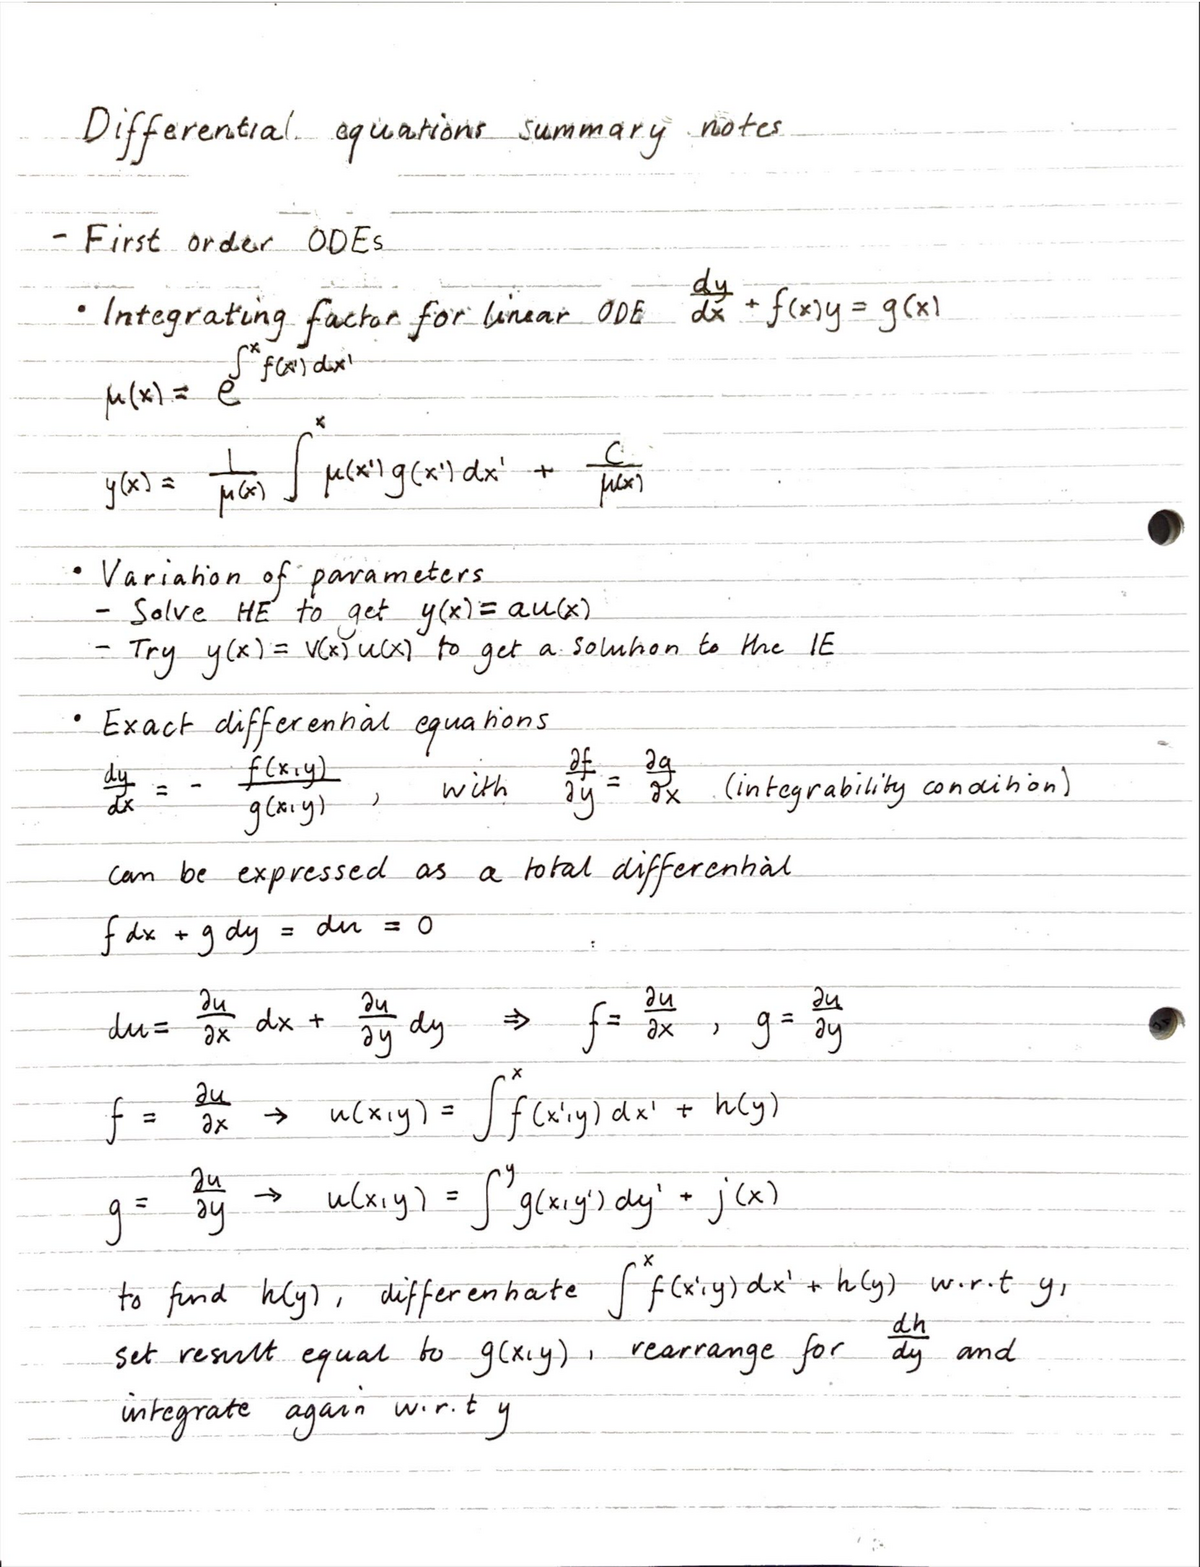 Differential equations summary notes
- First order ODEs
• Integrating factor for linear ODE dy/dx + f(x)y = g(x)
μ(x) = e^{∫^x f(x') dx'}
y(x) = 1/μ(x) ∫^x μ(x') g(x') dx' + C/μ(x)
• Variation of parameters
- Solve HE to get y(x) = au(x)
- Try y(x) = v(x)u(x) to get a solution to the IE
• Exact differential equations
dy/dx = - f(x,y)/g(x,y) , with ∂f/∂y = ∂g/∂x (integrability condition)
can be expressed as a total differential
f dx + g dy = du = 0
du = ∂u/∂x dx + ∂u/∂y dy ⇒ f = ∂u/∂x , g = ∂u/∂y
f = ∂u/∂x → u(x,y) = ∫^x f(x',y) dx' + h(y)
g = ∂u/∂y → u(x,y) = ∫^y g(x,y') dy' + j(x)
to find h(y), differentiate ∫^x f(x',y) dx' + h(y) w.r.t y,
set result equal to g(x,y), rearrange for dh/dy and
integrate again w.r.t y